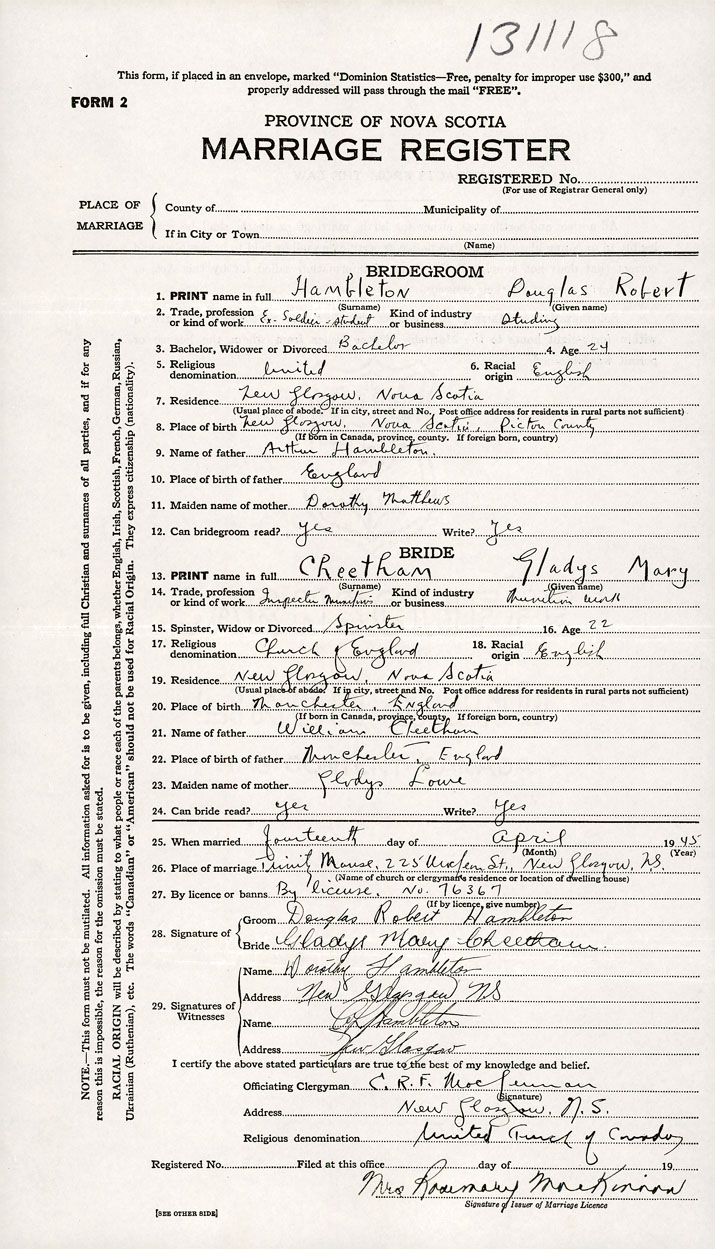 131118
This form, if placed in an envelope, marked "Dominion Statistics—Free, penalty for improper use $300," and
properly addressed will pass through the mail "FREE".
FORM 2
PROVINCE OF NOVA SCOTIA
MARRIAGE REGISTER
REGISTERED No.
(For use of Registrar General only)
PLACE OF MARRIAGE
County of Municipality of
If in City or Town
(Name)
BRIDEGROOM
1. PRINT name in full Hambleton Douglas Robert
(Surname) (Given name)
2. Trade, profession or kind of work Ex-Soldier-student Kind of industry or business Studing
3. Bachelor, Widower or Divorced Bachelor 4. Age 24
5. Religious denomination United 6. Racial origin English
7. Residence New Glasgow, Nova Scotia
(Usual place of abode. If in city, street and No. Post office address for residents in rural parts not sufficient)
8. Place of birth New Glasgow, Nova Scotia, Pictou County
(If born in Canada, province, county. If foreign born, country)
9. Name of father Arthur Hambleton.
10. Place of birth of father England
11. Maiden name of mother Dorothy Matthews
12. Can bridegroom read? Yes Write? Yes
BRIDE
13. PRINT name in full Cheetham Gladys Mary
(Surname) (Given name)
14. Trade, profession or kind of work Inspector Munitions Kind of industry or business Munition work
15. Spinster, Widow or Divorced Spinster 16. Age 22
17. Religious denomination Church of England 18. Racial origin English
19. Residence New Glasgow, Nova Scotia
(Usual place of abode. If in city, street and No. Post office address for residents in rural parts not sufficient)
20. Place of birth Manchester, England
(If born in Canada, province, county. If foreign born, country)
21. Name of father William Cheetham
22. Place of birth of father Manchester, England
23. Maiden name of mother Gladys Lowe
24. Can bride read? Yes Write? Yes
25. When married fourteenth day of April 1945
(Month) (Year)
26. Place of marriage 225 St., New Glasgow, N.S.
(Name of church or clergyman's residence or location of dwelling house)
27. By licence or banns By license, No. 76367
(If by licence, give number)
28. Signature of
Groom Douglas Robert Hambleton
Bride Gladys Mary Cheetham.
29. Signatures of Witnesses
Name Dorothy Hambleton
Address New Glasgow NS
Name Hambleton
Address New Glasgow
I certify the above stated particulars are true to the best of my knowledge and belief.
Officiating Clergyman C. R. F. MacLennan
(Signature)
Address New Glasgow, N.S.
Religious denomination United Church of Canada
Registered No. Filed at this office day of 19
Mrs Rosemary MacKinnon
Signature of Issuer of Marriage Licence
[SEE OTHER SIDE]
NOTE.—This form must not be mutilated. All information asked for is to be given, including full Christian and surnames of all parties, and if for any
reason this is impossible, the reason for the omission must be stated.
RACIAL ORIGIN will be described by stating to what people or race each of the parents belongs, whether English, Irish, Scottish, French, German, Russian,
Ukrainian (Ruthenian), etc. The words "Canadian" or "American" should not be used for Racial Origin. They express citizenship (nationality).